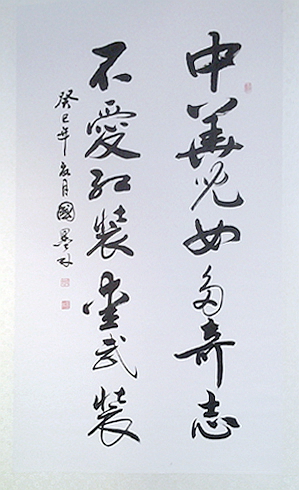 中華兒女多奇志
不愛红裝爱武裝
癸巳年月國